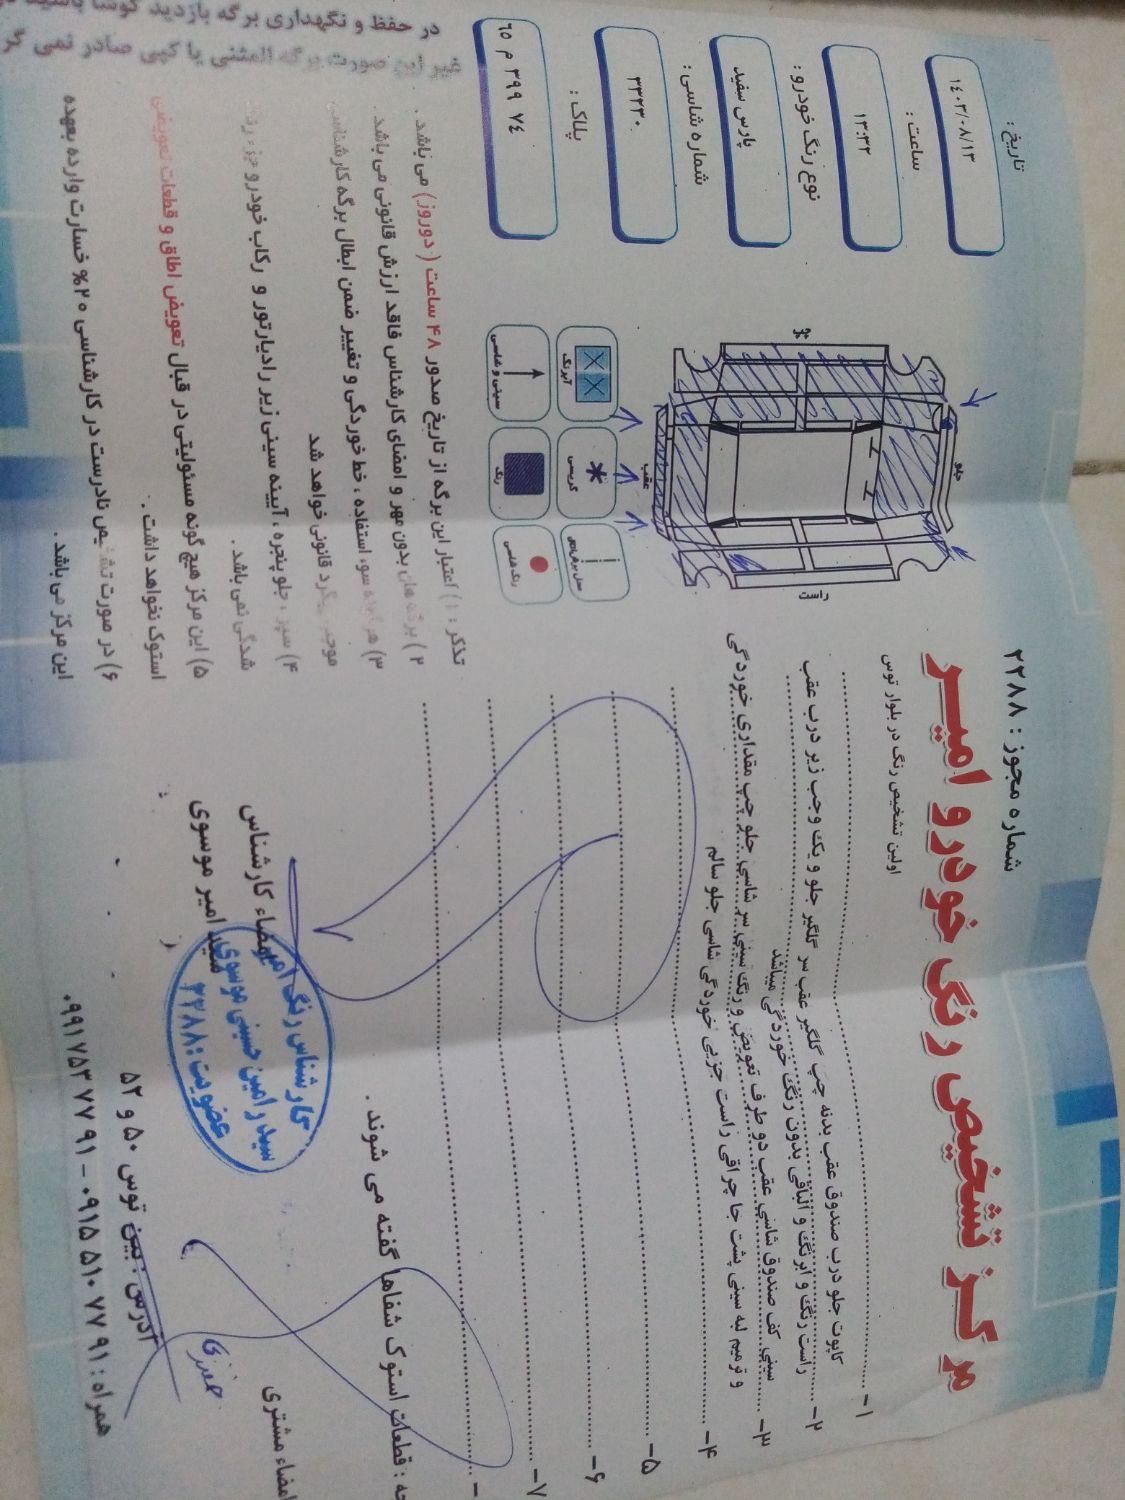 شماره مجوز : ۲۲۸۸
مرکز تشخیص رنگ خودرو امیر
اولین تشخیص رنگ در بلوار توس
تاریخ :
۱۴۰۳/۰۸/۱۳
ساعت :
۱۳:۳۲
نوع رنگ خودرو :
پارس سفید
شماره شاسی :
۳۳۲۳۰
پلاک :
۷۴ ۳۹۹ م ۶۵
جلو
راست
عقب
چپ
آبرنگ
گریسی
محل برفپاکن
سینی و شاسی
رنگ
رنگ شاسی
۱-
کاپوت جلو درب صندوق عقب بدنه چپ گلگیر عقب سر گلگیر جلو و یک وجب زیر درب عقب
۲- راست رنگ و ابرنگ و الباقی بدون رنگ خوردگی میباشد
۳- سینی کف صندوق شاسی عقب دو طرف تعویض و رنگ سینی سر شاسی جلو چپ مقداری خوردگی
و ترمیم لبه سینی پشت جا چراقی راست جزیی خوردگی شاسی جلو سالم
۴-
۵-
۶-
۷-
تذکر : ۱) اعتبار این برگه از تاریخ صدور ۴۸ ساعت ( دوروز) می باشد .
۲ ) برگه های بدون مهر و امضای کارشناس فاقد ارزش قانونی می باشد .
۳) هر گونه سوء استفاده ، خط خوردگی و تغییر ضمن ابطال برگه کارشناسی
موجب پیگرد قانونی خواهد شد
۴) سپر ، جلو پنجره ، آیینه سینی زیر رادیارتور و رکاب خودرو جزء رنگ
شدگی نمی باشد .
۵) این مرکز هیچ گونه مسئولیتی در قبال تعویض اطاق و قطعات تعویض
استوک نخواهد داشت .
۶) در صورت تشخیص نادرست در کارشناسی ۲۰% خسارت وارده بعهده
این مرکز می باشد .
در حفظ و نگهداری برگه بازدید کوشا باشید
غیر این صورت برگه المثنی یا کپی صادر نمی گر
: قطعات استوک شفاها گفته می شوند .
امضاء مشتری
امضاء کارشناس
سید امیر موسوی
کارشناس رنگ امیر
سید رامین حسینی موسوی
عضویت : ۲۲۸۸
آدرس : بین توس ۵۰ و ۵۲
همراه : ۰۹۱۵ ۵۱۰ ۷۷ ۹۱ - ۰۹۹۱ ۷۵۳ ۷۷ ۹۱